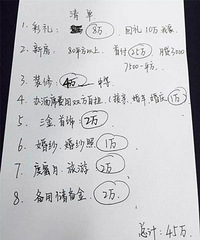 清单
1. 彩礼: 8万 回礼10万
2. 新房: 80平方以上 首付25万 月供3000
7500-4万
3. 装修: 4万 中等
4. 办酒席费用双方自担(婚车、婚庆)1万
5. 三金首饰: 2万
6. 婚纱、婚纱照 1万
7. 度蜜月、旅游 2万
8. 备用 金 2万
总计: 45万